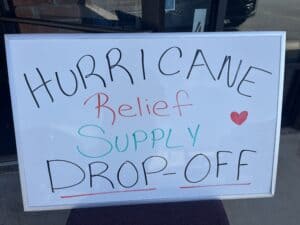 HURRICANE
Relief
SUPPLY
DROP-OFF